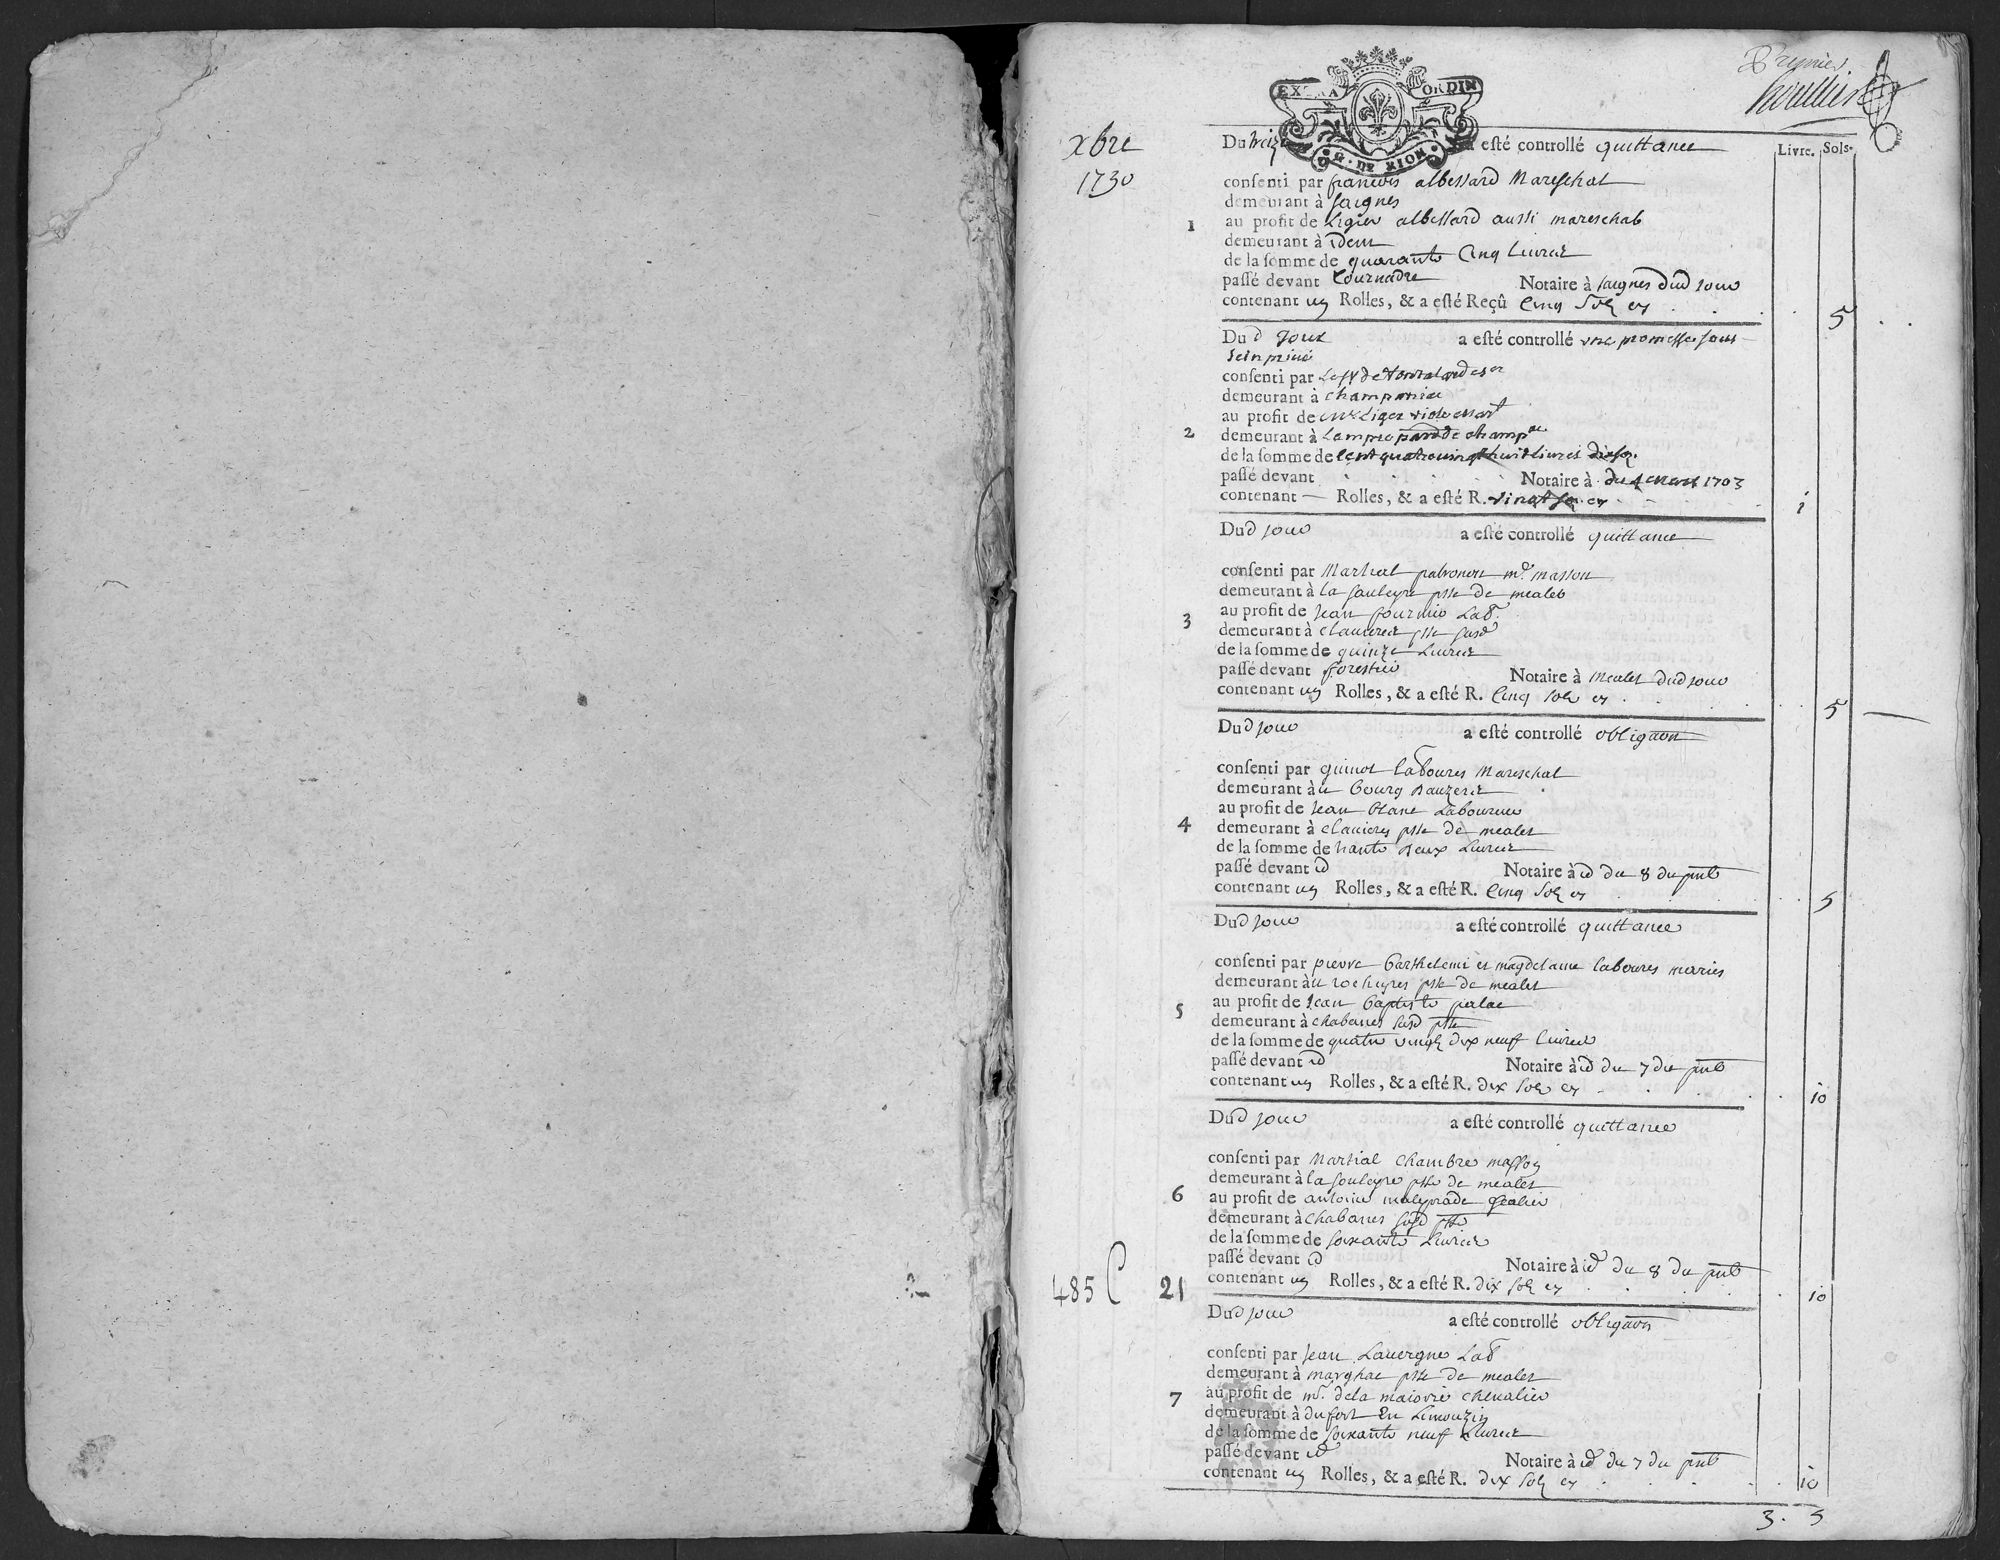 Premier
EXTRA ORDIN
G. DE RIOM
xbre
1730
Livre. Sols.
Du treiz a esté controllé quittance
consenti par francois albessard Mareschal
demeurant à saignes
1 au profit de Ligier albessard aussi mareschal
demeurant à idem
de la somme de quarante Cinq Livres
passé devant Tournadre Notaire à saignes dud jour
contenant un Rolles, & a esté Reçû Cinq solz cy 5
Dud Jour a esté controllé une promesse sous
sein privé
consenti par
demeurant à champanie
au profit de
2 demeurant à
de la somme de Cent quatre vingt huit livres dix s.
passé devant Notaire à du 4 mars 1703
contenant — Rolles, & a esté R. vingt s. cy 1
Dud jour a esté controllé quittance
consenti par Martial patronon md. masson
demeurant à la souleyre psse de mealet
3 au profit de Jean fournio Lab.
demeurant à clavieres psse susd
de la somme de quinze Livres
passé devant forestier Notaire à mealet dud jour
contenant un Rolles, & a esté R. Cinq solz cy 5
Dud jour a esté controllé obligaon
consenti par guinot laboures Mareschal
demeurant àu bourg dauzers
au profit de Jean blanc Laboureur
4 demeurant à clavieres psse de mealet
de la somme de trante deux Livres
passé devant id Notaire à id du 8 du pnt
contenant un Rolles, & a esté R. Cinq solz cy 5
Dud jour a esté controllé quittance
consenti par pierre barthelemi et magdelaine laboures maries
demeurant àu rocheyres psse de mealet
au profit de Jean baptiste palac
5 demeurant à chabanes susd psse
de la somme de quatre vingt dix neuf livres
passé devant id Notaire à id du 7 du pnt
contenant un Rolles, & a esté R. dix solz cy 10
Dud jour a esté controllé quittance
consenti par Martial chambre masson
demeurant à la souleyre psse de mealet
6 au profit de antoine maleprade
demeurant à chabanes susd psse
de la somme de soixante Livres
passé devant id Notaire à id du 8 du pnt
485 C 21 contenant un Rolles, & a esté R. dix solz cy 10
Dud jour a esté controllé obligaon
consenti par Jean Lavergne Lab
demeurant à marghac psse de mealet
7 au profit de mr. dela maiorie chevalier
demeurant à dufort En Limouzin
de la somme de soixante neuf Livres
passé devant id Notaire à id du 7 du pnt
contenant un Rolles, & a esté R. dix solz cy 10
3. 5